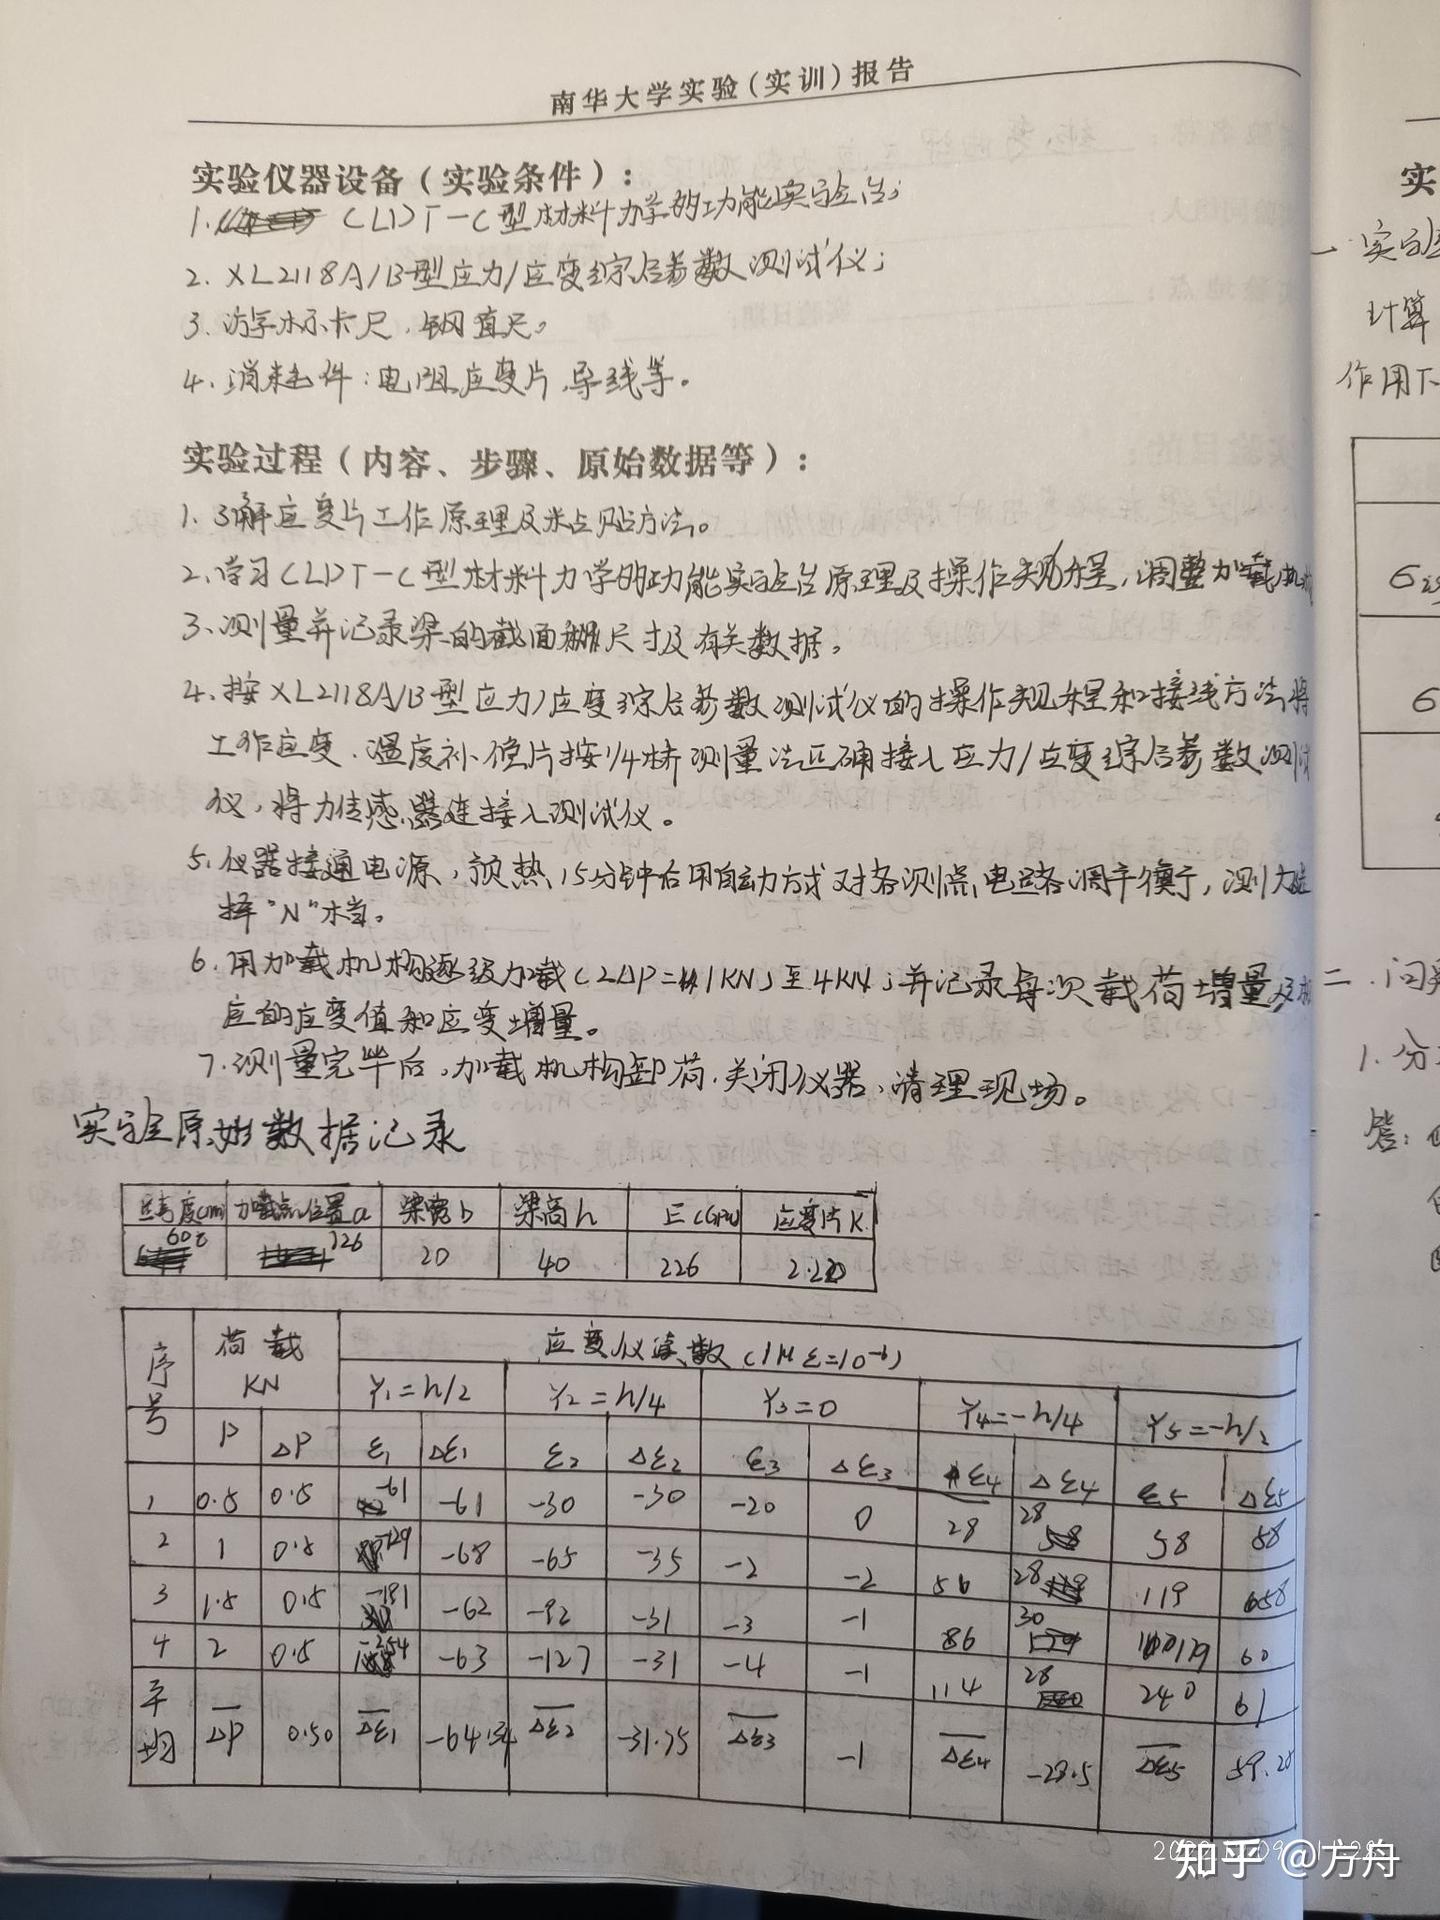 南华大学实验(实训)报告
实验仪器设备(实验条件):
1. CLDT-C型材料力学的功能实验台;
2. XL2118A/B型应力/应变综合参数测试仪;
3. 游标卡尺、钢直尺。
4. 消耗件:电阻应变片、导线等。
实验过程(内容、步骤、原始数据等):
1. 了解应变片工作原理及粘贴方法。
2. 学习CLDT-C型材料力学的功能实验台原理及操作规程,调整加载机
3. 测量并记录梁的截面尺寸及有关数据。
4. 按XL2118A/B型应力/应变综合参数测试仪的操作规程和接线方法将
工作应变、温度补偿片按1/4桥测量法正确接入应力/应变综合参数测试
仪,将力传感器连接入测试仪。
5. 仪器接通电源,预热15分钟后用自动方式对各测点电路调平衡,测力选
择"N"档。
6. 用加载机构逐级加载(2ΔP=1KN)至4KN;并记录每次载荷增量及相
应的应变值和应变增量。
7. 测量完毕后,加载机构卸荷.关闭仪器、清理现场。
实验原始数据记录
跨度(cm) 加载点位置a 梁宽b 梁高h E(GPa) 应变片K
20 40 226 2.220
序号 荷载 KN 应变仪读数(1με=10⁻⁶)
Y₁=h/2 Y₂=h/4 Y₃=0 Y₄=-h/4 Y₅=-h/2
P ΔP ε₁ Δε₁ ε₂ Δε₂ ε₃ Δε₃ ε₄ Δε₄ ε₅ Δε₅
1 0.5 0.5 -61 -61 -30 -30 -20 0 28 28 58 58
2 1 0.5 -129 -68 -65 -35 -2 -2 56 28 119
3 1.5 0.5 -191 -62 -92 -31 -3 -1 86 30 179 60
4 2 0.5 -254 -63 -127 -31 -4 -1 114 28 240 61
平均 ΔP 0.50 Δε₁ Δε₂ -31.75 Δε₃ -1 Δε₄ -28.5 Δε₅ 59.25
实
一.实验
计算
作用下
二.问
1. 分
答:
知乎 @方舟